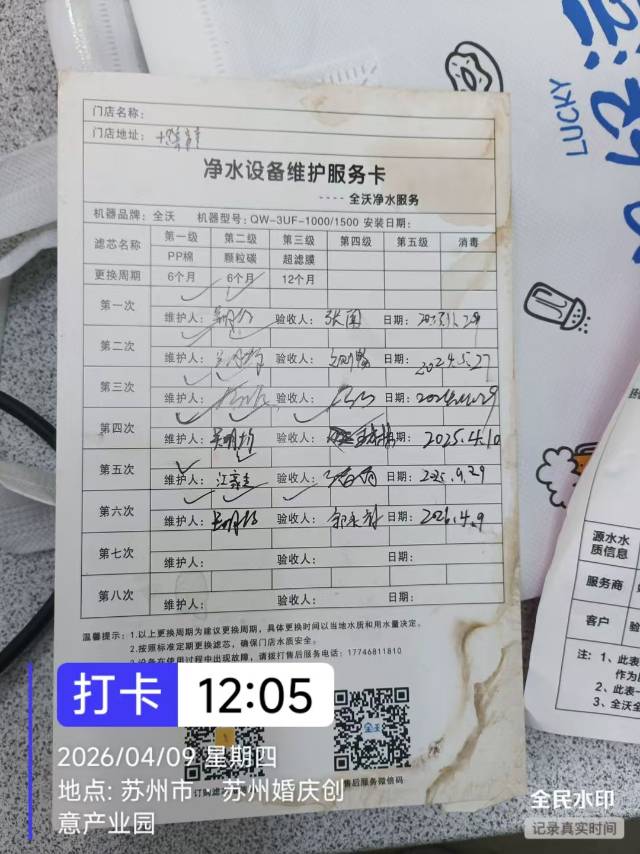 门店名称:
门店地址:
净水设备维护服务卡
----全沃净水服务
机器品牌: 全沃 机器型号: QW-3UF-1000/1500 安装日期:
滤芯名称 第一级 第二级 第三级 第四级 第五级 消毒
PP棉 颗粒碳 超滤膜
更换周期 6个月 6个月 12个月
第一次
维护人: 验收人: 日期:
第二次
维护人: 验收人: 日期: 2024.5.27
第三次
维护人: 验收人: 日期:
第四次
维护人: 吴明 验收人: 日期: 2025.4.10
第五次
维护人: 验收人: 日期: 2025.9.29
第六次
维护人: 吴明 验收人: 日期: 2026.4.9
第七次
维护人: 验收人: 日期:
第八次
维护人: 验收人: 日期:
温馨提示: 1.以上更换周期为建议更换周期, 具体更换时间以当地水质和用水量决定。
2.按照标准定期更换滤芯, 确保门店水质安全。
3.设备在使用过程中出现故障, 请拨打售后服务电话: 17746811810
售后服务微信码
LUCKY
源水水
质信息
服务商
客户 验
注: 1、此表
作为
2、此表一
3、全沃全
打卡 12:05
2026/04/09 星期四
地点: 苏州市 · 苏州婚庆创
意产业园
全民水印
记录真实时间